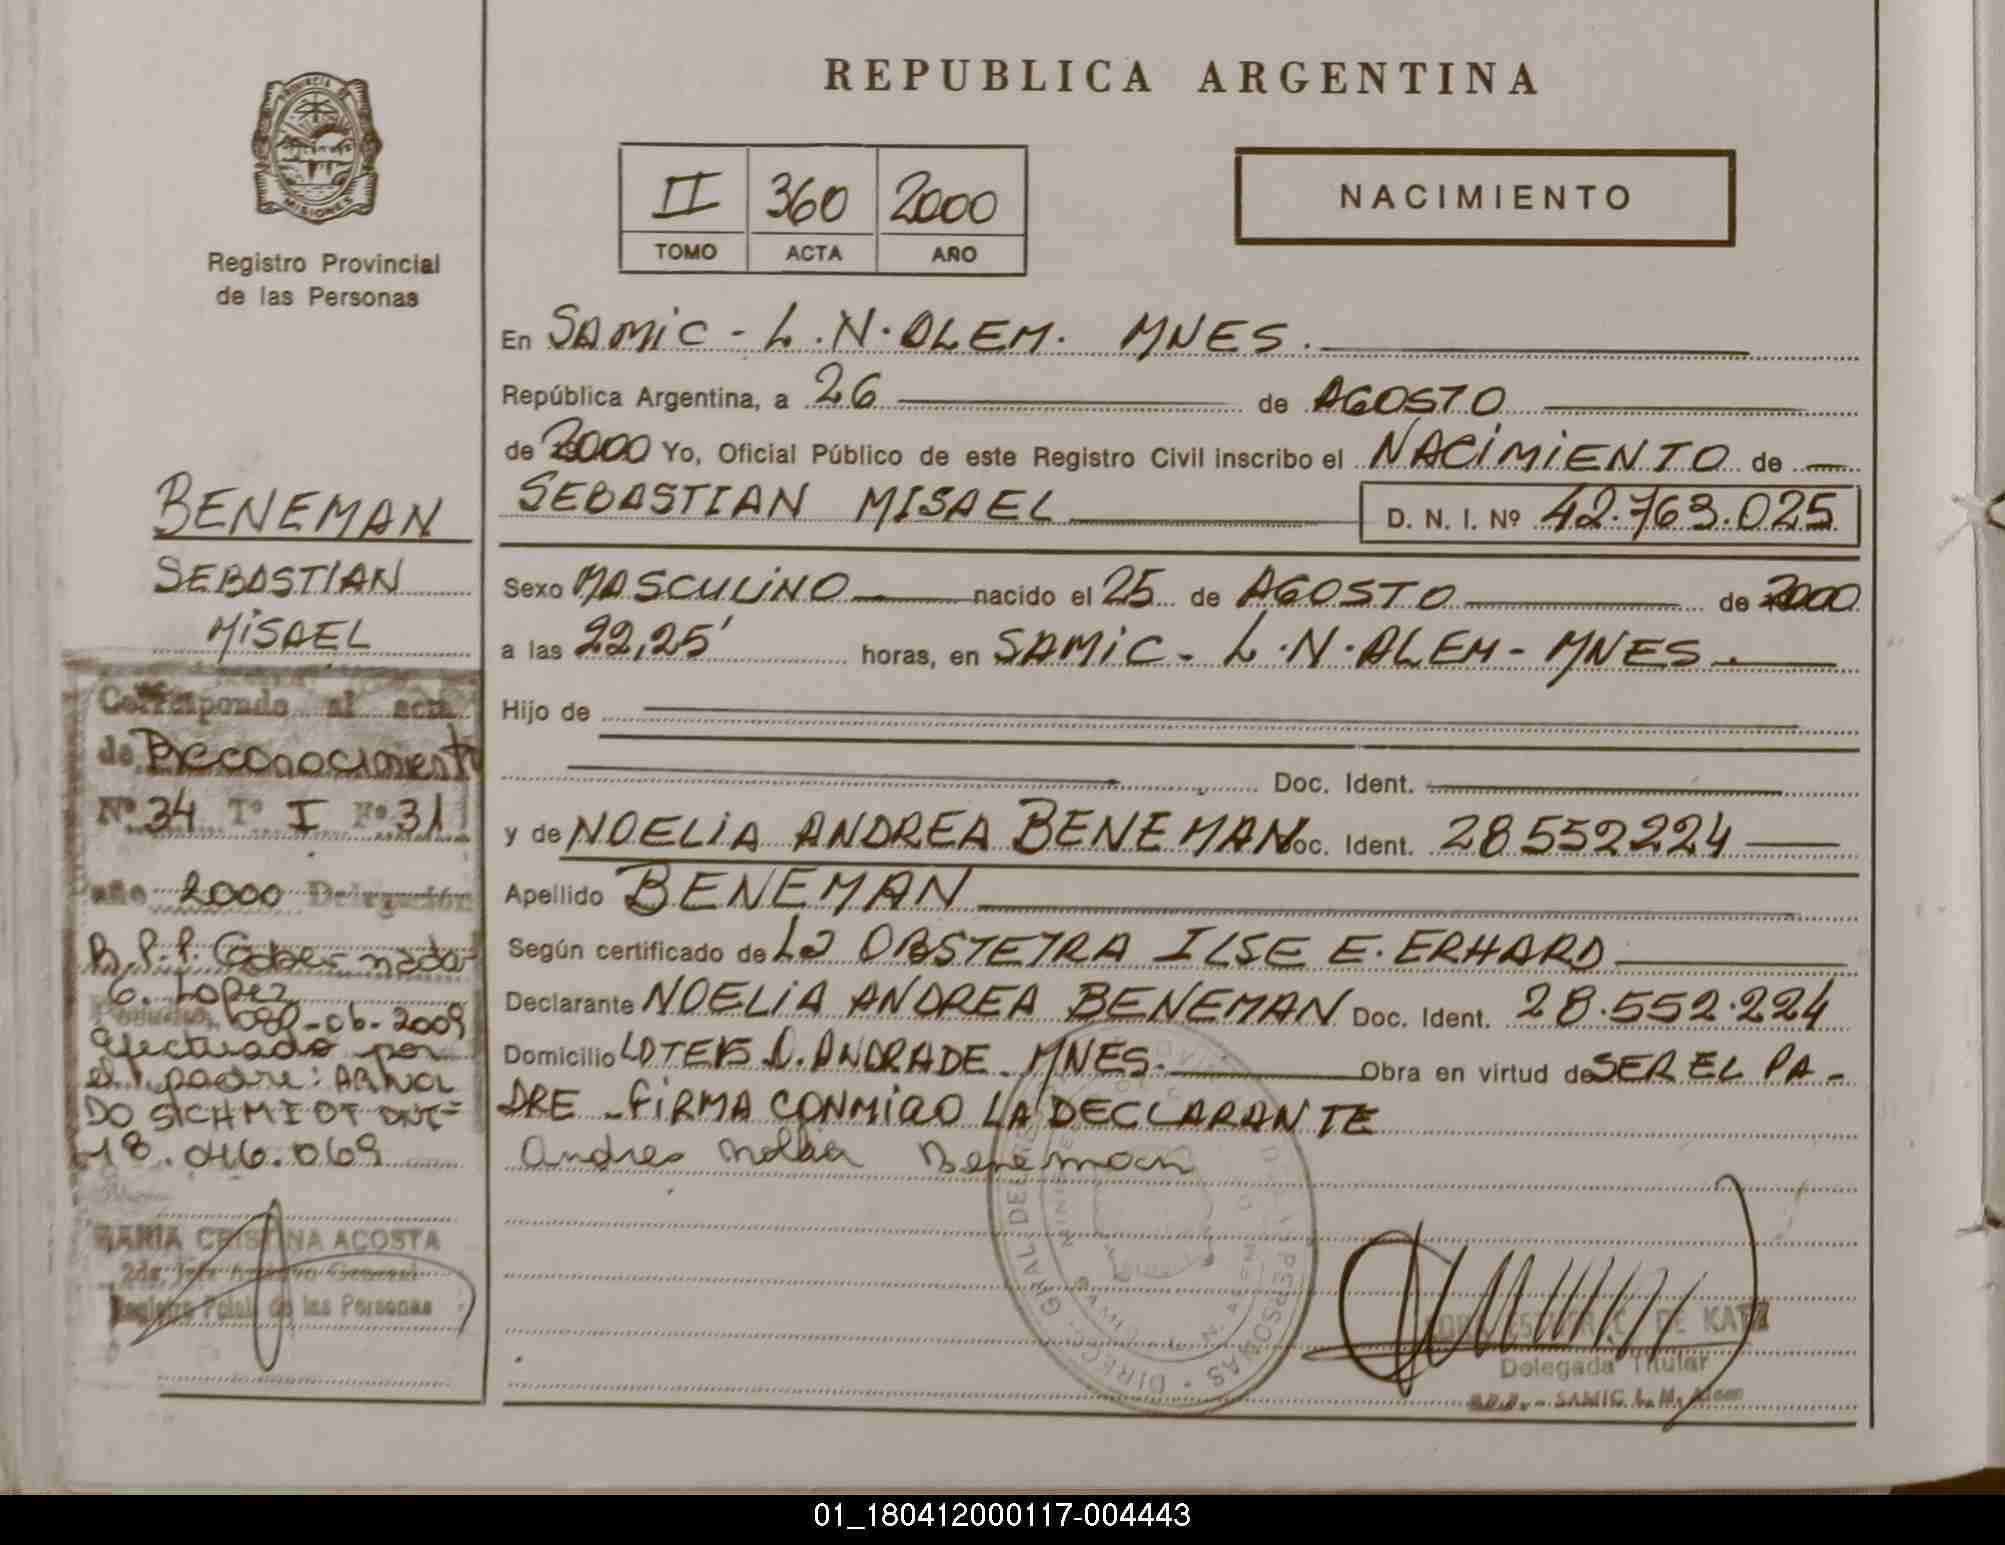 REPUBLICA ARGENTINA
PROVINCIA DE
MISIONES
Registro Provincial
de las Personas
II 360 2000
TOMO ACTA AÑO
NACIMIENTO
En SAMIC - L.N. ALEM. MNES.
República Argentina, a 26 de AGOSTO
de 2000 Yo, Oficial Público de este Registro Civil inscribo el NACIMIENTO de
SEBASTIAN MISAEL D. N. I. Nº 42.763.025
Sexo MASCULINO nacido el 25 de AGOSTO de 2000
a las 22,25' horas, en SAMIC - L.N. ALEM - MNES.
Hijo de
Doc. Ident.
y de NOELIA ANDREA BENEMAN Doc. Ident. 28.552224
Apellido BENEMAN
Según certificado de La OBSTETRA ILSE E. ERHARD
Declarante NOELIA ANDREA BENEMAN Doc. Ident. 28.552.224
Domicilio D. ANDRADE. MNES. Obra en virtud de SER EL PA-
DRE - FIRMA CONMIGO LA DECLARANTE
Andrea Beneman
DE KATZ
Delegada Titular
SAMIC. L. N. Alem
BENEMAN
SEBASTIAN
MISAEL
Corresponde al acta
de Reconocimiento
Nº 34 Tº I Fº 31
año 2000 Delegación
R.P.P. Gobernador
G. Lopez
-06-2009
efectuado por
el padre: ARNOL
DO SICHMIOT DNI=
18.046.069
MARIA CRISTINA ACOSTA
2da. Jefe Archivo General
Registro Pcial. de las Personas
01_180412000117-004443